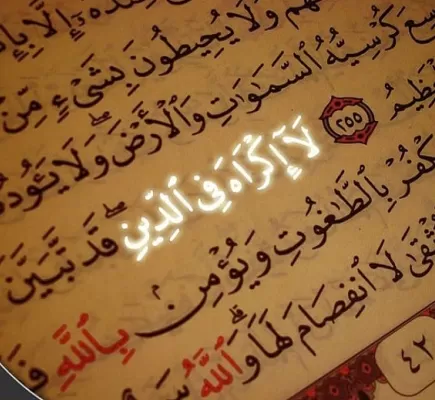 إِلَّا بِإِ
هُمْ وَلَا يُحِيطُونَ بِشَىْءٍ مِّنْ
سِعَ كُرْسِيُّهُ ٱلسَّمَٰوَٰتِ وَٱلْأَرْضَ ۖ وَلَا يَـُٔودُهُ
عَظِيمُ ٢٥٥ لَآ إِكْرَاهَ فِى ٱلدِّينِ ۖ قَد تَّبَيَّنَ
كْفُرْ بِٱلطَّٰغُوتِ وَيُؤْمِنۢ بِٱللَّهِ فَ
ثْقَىٰ لَا ٱنفِصَامَ لَهَا ۗ وَٱللَّهُ سَ
٤٢